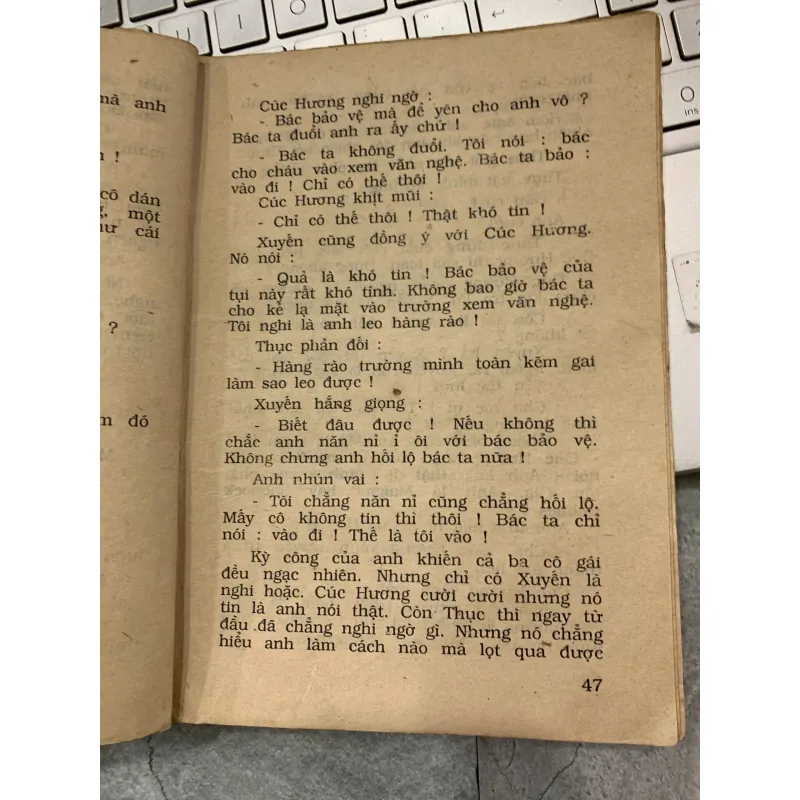 mà anh
!
cô dán
một
cái
?
đó
Cúc Hương nghi ngờ :
- Bác bảo vệ mà để yên cho anh vô ?
Bác ta đuổi anh ra ấy chứ !
- Bác ta không đuổi. Tôi nói : bác
cho cháu vào xem văn nghệ. Bác ta bảo :
vào đi ! Chỉ có thế thôi !
Cúc Hương khịt mũi :
- Chỉ có thế thôi ! Thật khó tin !
Xuyến cũng đồng ý với Cúc Hương.
Nó nói :
- Quả là khó tin ! Bác bảo vệ của
tụi này rất khó tính. Không bao giờ bác ta
cho kẻ lạ mặt vào trường xem văn nghệ.
Tôi nghi là anh leo hàng rào !
Thục phản đối :
- Hàng rào trường mình toàn kẽm gai
làm sao leo được !
Xuyến hắng giọng :
- Biết đâu được ! Nếu không thì
chắc anh năn nỉ ỉ ôi với bác bảo vệ.
Không chừng anh hối lộ bác ta nữa !
Anh nhún vai :
- Tôi chẳng năn nỉ cũng chẳng hối lộ.
Mấy cô không tin thì thôi ! Bác ta chỉ
nói : vào đi ! Thế là tôi vào !
Kỳ công của anh khiến cả ba cô gái
đều ngạc nhiên. Nhưng chỉ có Xuyến là
nghi hoặc. Cúc Hương cười cười nhưng nó
tin là anh nói thật. Còn Thục thì ngay từ
đầu đã chẳng nghi ngờ gì. Nhưng nó chẳng
hiểu anh làm cách nào mà lọt qua được
47
ins